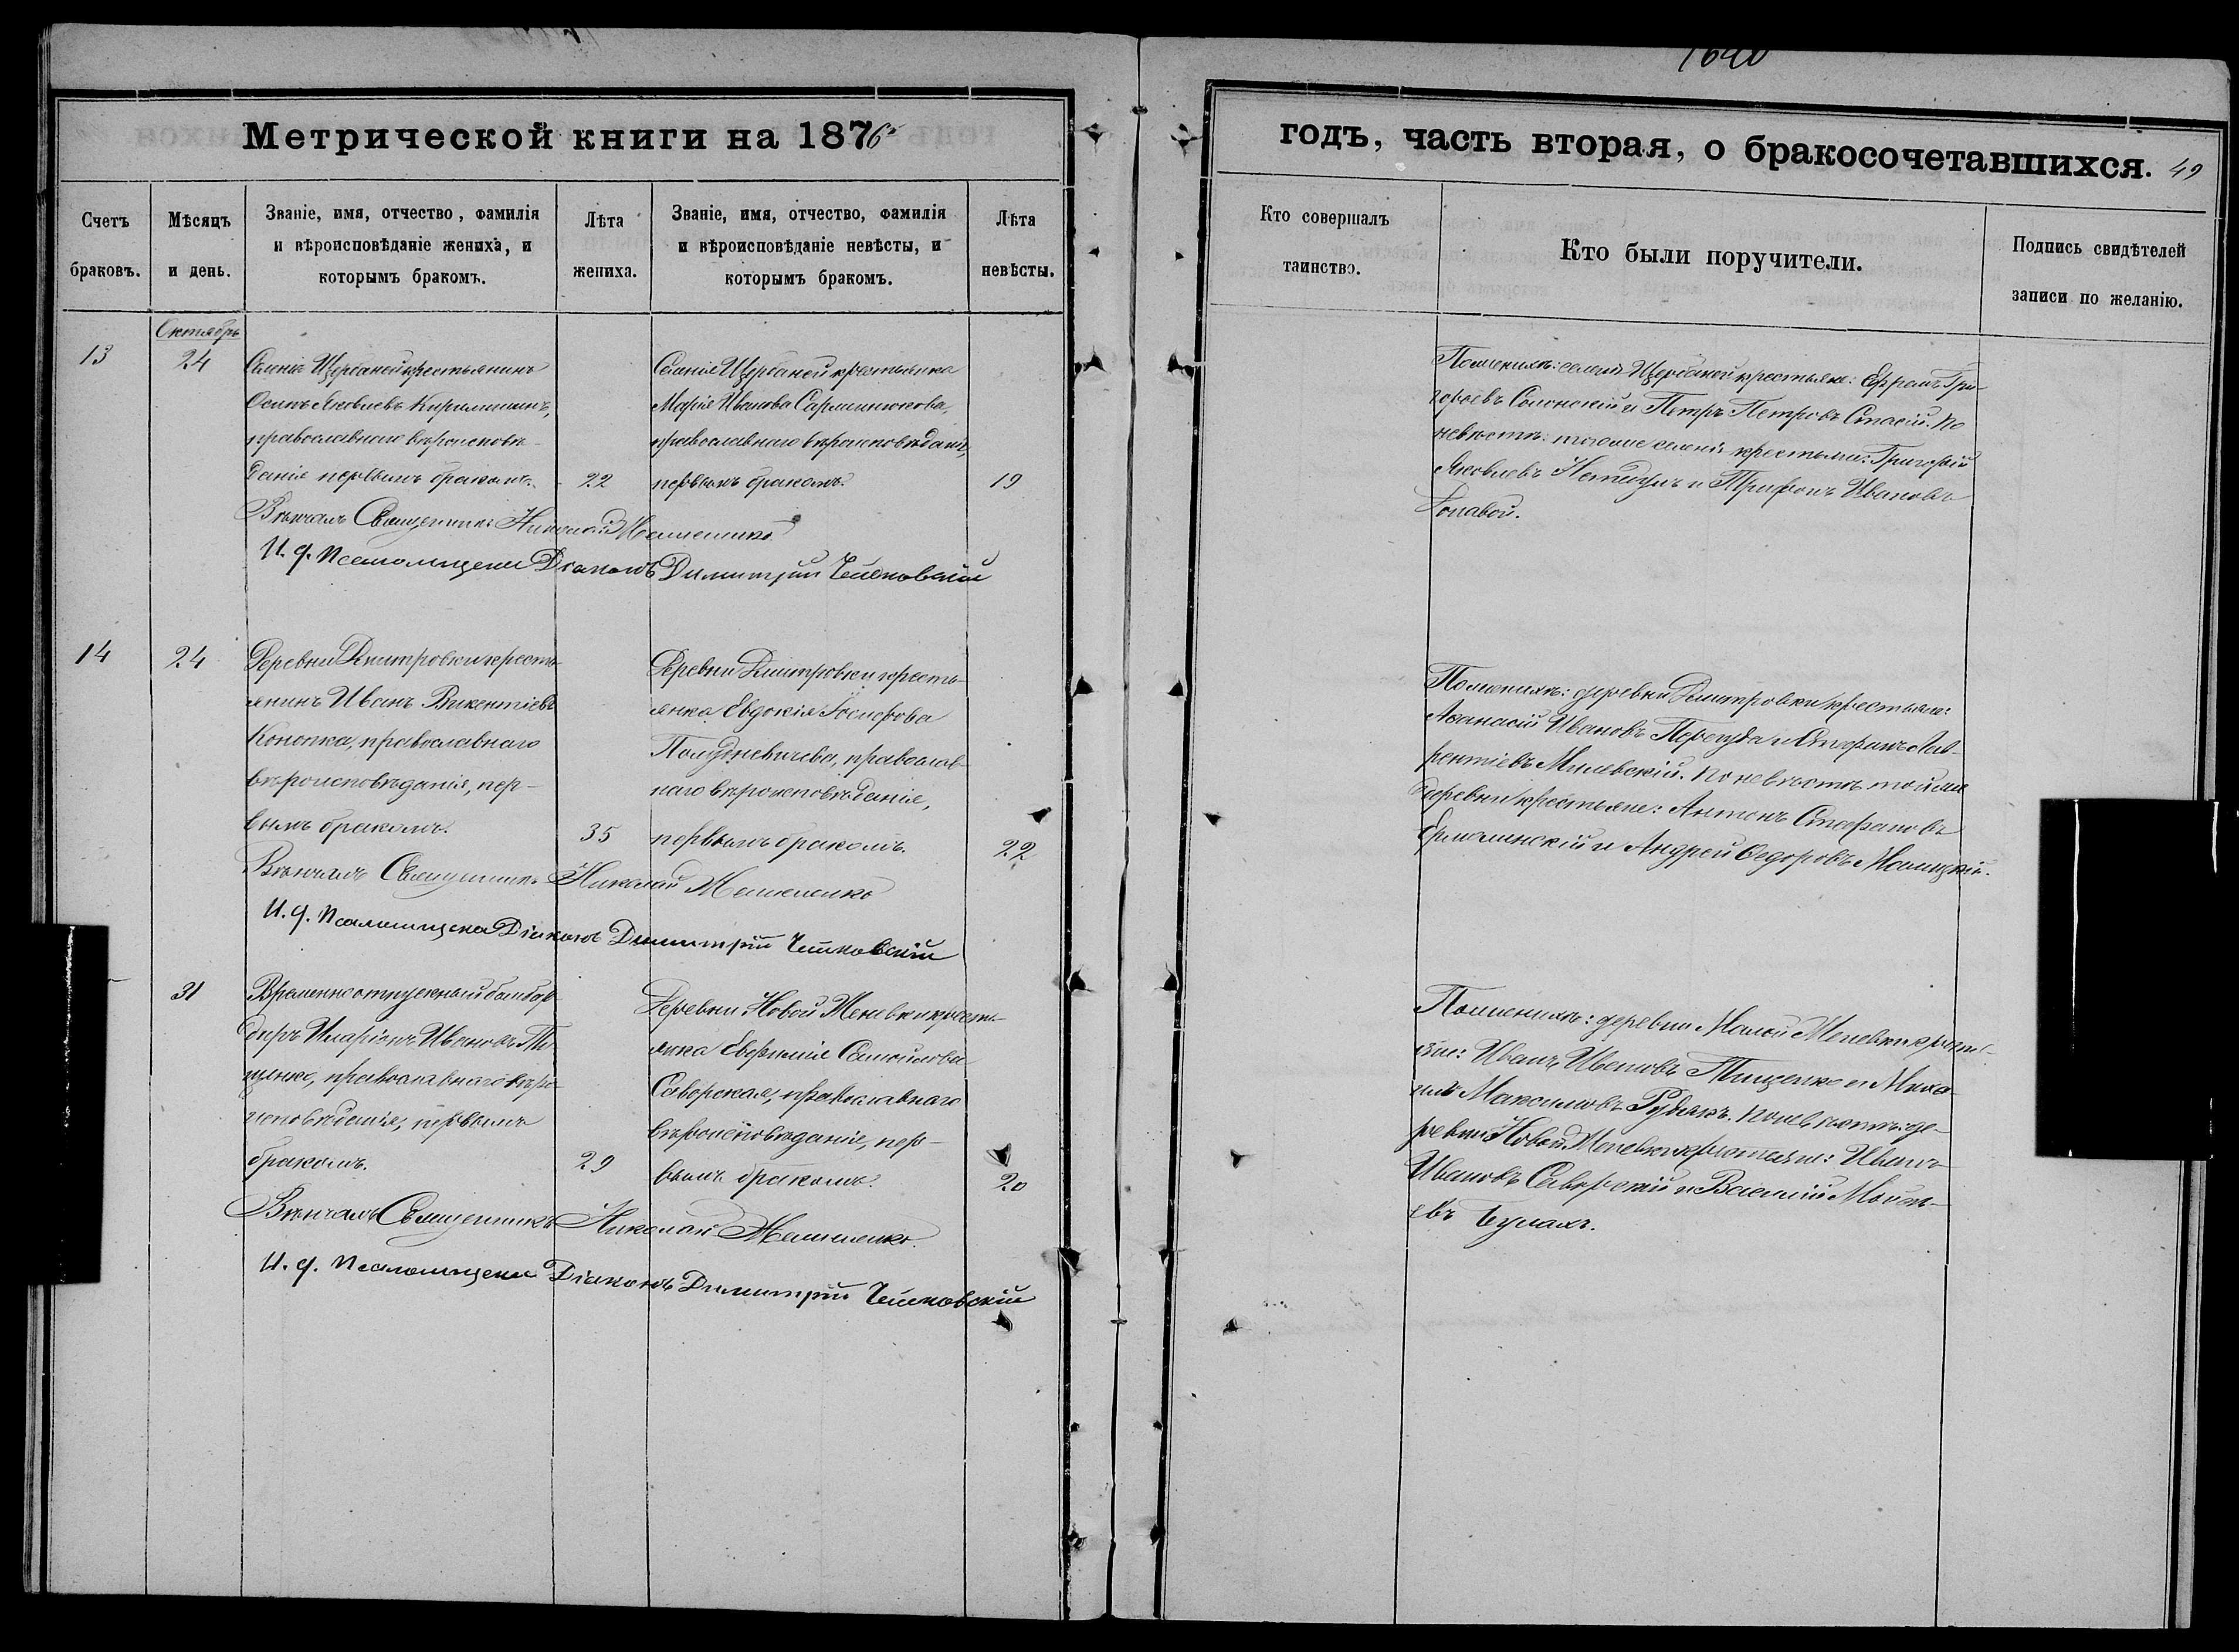 1640
Метрической книги на 1876й
годъ, часть вторая, о бракосочетавшихся. 49
Счетъ браковъ.
Мѣсяцъ и день.
Званіе, имя, отчество, фамилія и вѣроисповѣданіе жениха, и которымъ бракомъ.
Лѣта жениха.
Званіе, имя, отчество, фамилія и вѣроисповѣданіе невѣсты, и которымъ бракомъ.
Лѣта невѣсты.
Кто совершалъ таинство.
Кто были поручители.
Подпись свидѣтелей записи по желанію.
Октябрь
13
24
Селенія Щербаней крестьянинъ
Осипъ Яковлевъ
православнаго вѣроисповѣ-
данія первымъ бракомъ.
22
Селенія Щербаней крестьянка
Марія Иванова
православнаго вѣроисповѣданія,
первымъ бракомъ.
19
Вѣнчалъ Священникъ Николай Мельниченко
И. д. Псаломщика Діаконъ Димитрій Чайковскій
По женихѣ: селенія Щербаней крестьяне: Ефремъ Гри-
горьевъ Солонскій и Петръ Петровъ Спасій. По
невѣстѣ: того же селенія крестьяне: Григорій
Яковлевъ и Трифонъ Ивановъ
14
24
Деревни Дмитровки кресть-
янинъ Иванъ Викентіевъ
Конопка, православнаго
вѣроисповѣданія, пер-
вымъ бракомъ.
35
Деревни Дмитровки кресть-
янка Евдокія Іосифова
православ-
наго вѣроисповѣданія,
первымъ бракомъ.
22
Вѣнчалъ Священникъ Николай Мельниченко
И. д. Псаломщика Діаконъ Димитрій Чайковскій
По женихѣ: деревни Дмитровки крестьяне:
Аѳанасій Ивановъ Перегуда и Стефанъ Лав-
рентіевъ Милевскій. По невѣстѣ той же
деревни крестьяне: Антонъ Стефановъ
Ермолинскій и Андрей Ѳедоровъ
31
Временноотпускный бомбар-
диръ Иларіонъ Ивановъ Ти-
щенко, православнаго вѣро-
исповѣданія, первымъ
бракомъ.
29
Деревни Новой Меневки кресть-
янка Евфимія Самойлова
Саворская, православнаго
вѣроисповѣданія, пер-
вымъ бракомъ.
20
Вѣнчалъ Священникъ Николай Мельниченко.
И. д. Псаломщика Діаконъ Димитрій Чайковскій
По женихѣ: деревни Малой Меневки кресть-
яне: Иванъ Ивановъ Тищенко и Миха-
илъ Максимовъ Рудякъ. По невѣстѣ: де-
ревни Новой Меневки крестьяне: Иванъ
Ивановъ Саворскій и Василій Моисе-
евъ